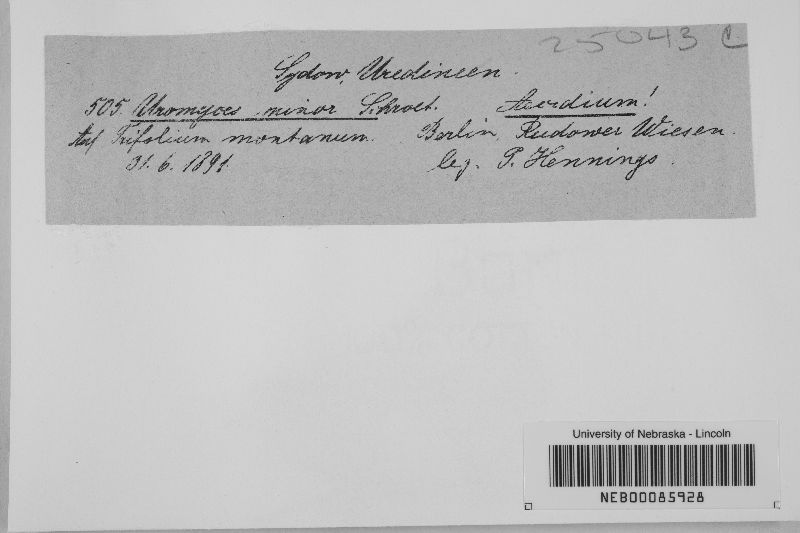 25043 C.
Sydow, Uredineen.
505. Uromyces minor Schroet. Aecidium!
Auf Trifolium montanum. Berlin, Rudower Wiesen.
31. 6. 1891. leg. P. Hennings.
University of Nebraska - Lincoln
NEB00085928